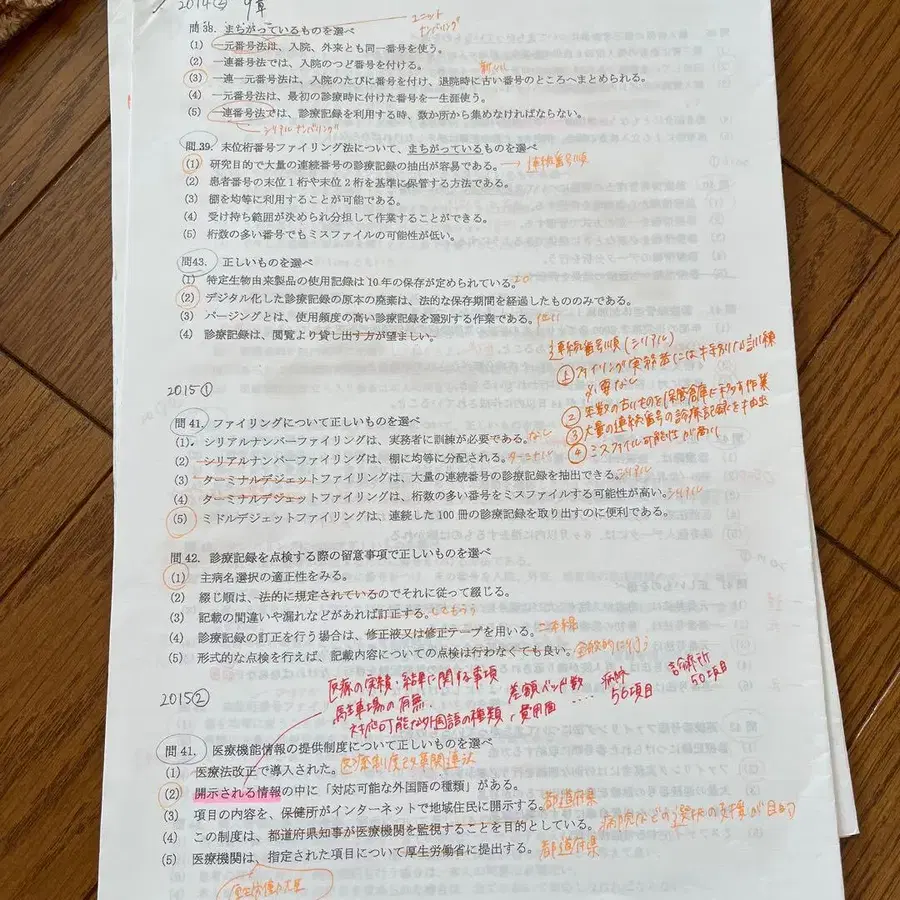 2014② 9章
ユニット
ナンバリング
問38. まちがっているものを選べ
(1) 一元番号法は、入院、外来とも同一番号を使う。
(2) 一連番号法では、入院のつど番号を付ける。
新しい
(3) 一連一元番号法は、入院のたびに番号を付け、退院時に古い番号のところへまとめられる。
(4) 一元番号法は、最初の診療時に付けた番号を一生涯使う。
(5) 一連番号法では、診療記録を利用する時、数か所から集めなければならない。
シリアルナンバリング
問39. 末位桁番号ファイリング法について、まちがっているものを選べ
(1) 研究目的で大量の連続番号の診療記録の抽出が容易である。→連続番号順
(2) 患者番号の末位1桁や末位2桁を基準に保管する方法である。
(3) 棚を均等に利用することが可能である。
(4) 受け持ち範囲が決められ分担して作業することができる。
(5) 桁数の多い番号でもミスファイルの可能性が低い。
問43. 正しいものを選べ
(1) 特定生物由来製品の使用記録は10年の保存が定められている。20
(2) デジタル化した診療記録の原本の廃棄は、法的な保存期間を経過したもののみである。
(3) パージングとは、使用頻度の高い診療記録を選別する作業である。低い
(4) 診療記録は、閲覧より貸し出す方が望ましい。
連続番号順(シリアル)
①ファイリング実務者には特別な訓練
必要なし
②年数の古いものを保管倉庫に移す作業
③大量の連続番号の診療記録を抽出
④ミスファイル可能性が高い
2015①
問41. ファイリングについて正しいものを選べ
(1) シリアルナンバーファイリングは、実務者に訓練が必要である。なし
(2) シリアルナンバーファイリングは、棚に均等に分配される。ターミナル
(3) ターミナルデジェットファイリングは、大量の連続番号の診療記録を抽出できる。シリアル
(4) ターミナルデジェットファイリングは、桁数の多い番号をミスファイルする可能性が高い。シリアル
(5) ミドルデジェットファイリングは、連続した100冊の診療記録を取り出すのに便利である。
問42. 診療記録を点検する際の留意事項で正しいものを選べ
(1) 主病名選択の適正性をみる。
(2) 綴じ順は、法的に規定されているのでそれに従って綴じる。
(3) 記載の間違いや漏れなどがあれば訂正する。してもらう
(4) 診療記録の訂正を行う場合は、修正液又は修正テープを用いる。二本線
(5) 形式的な点検を行えば、記載内容についての点検は行わなくても良い。
医療の実績・結果に関する事項
駐車場の有無.
対応可能な外国語の種類
差額ベッド数
費用面 ....
病院
56項目
診療所
50項目
2015②
問41. 医療機能情報の提供制度について正しいものを選べ
(1) 医療法改正で導入された。
(2) 開示される情報の中に「対応可能な外国語の種類」がある。
(3) 項目の内容を、保健所がインターネットで地域住民に開示する。都道府県
(4) この制度は、都道府県知事が医療機関を監視することを目的としている。病院などの選択の支援が目的
(5) 医療機関は、指定された項目について厚生労働省に提出する。都道府県
厚生労働大臣